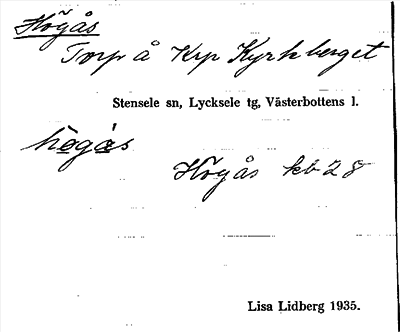 Högås
Torp å Krp Kyrkberget
Stensele sn, Lycksele tg, Västerbottens l.
högås
Högås kb 28
Lisa Lidberg 1935.